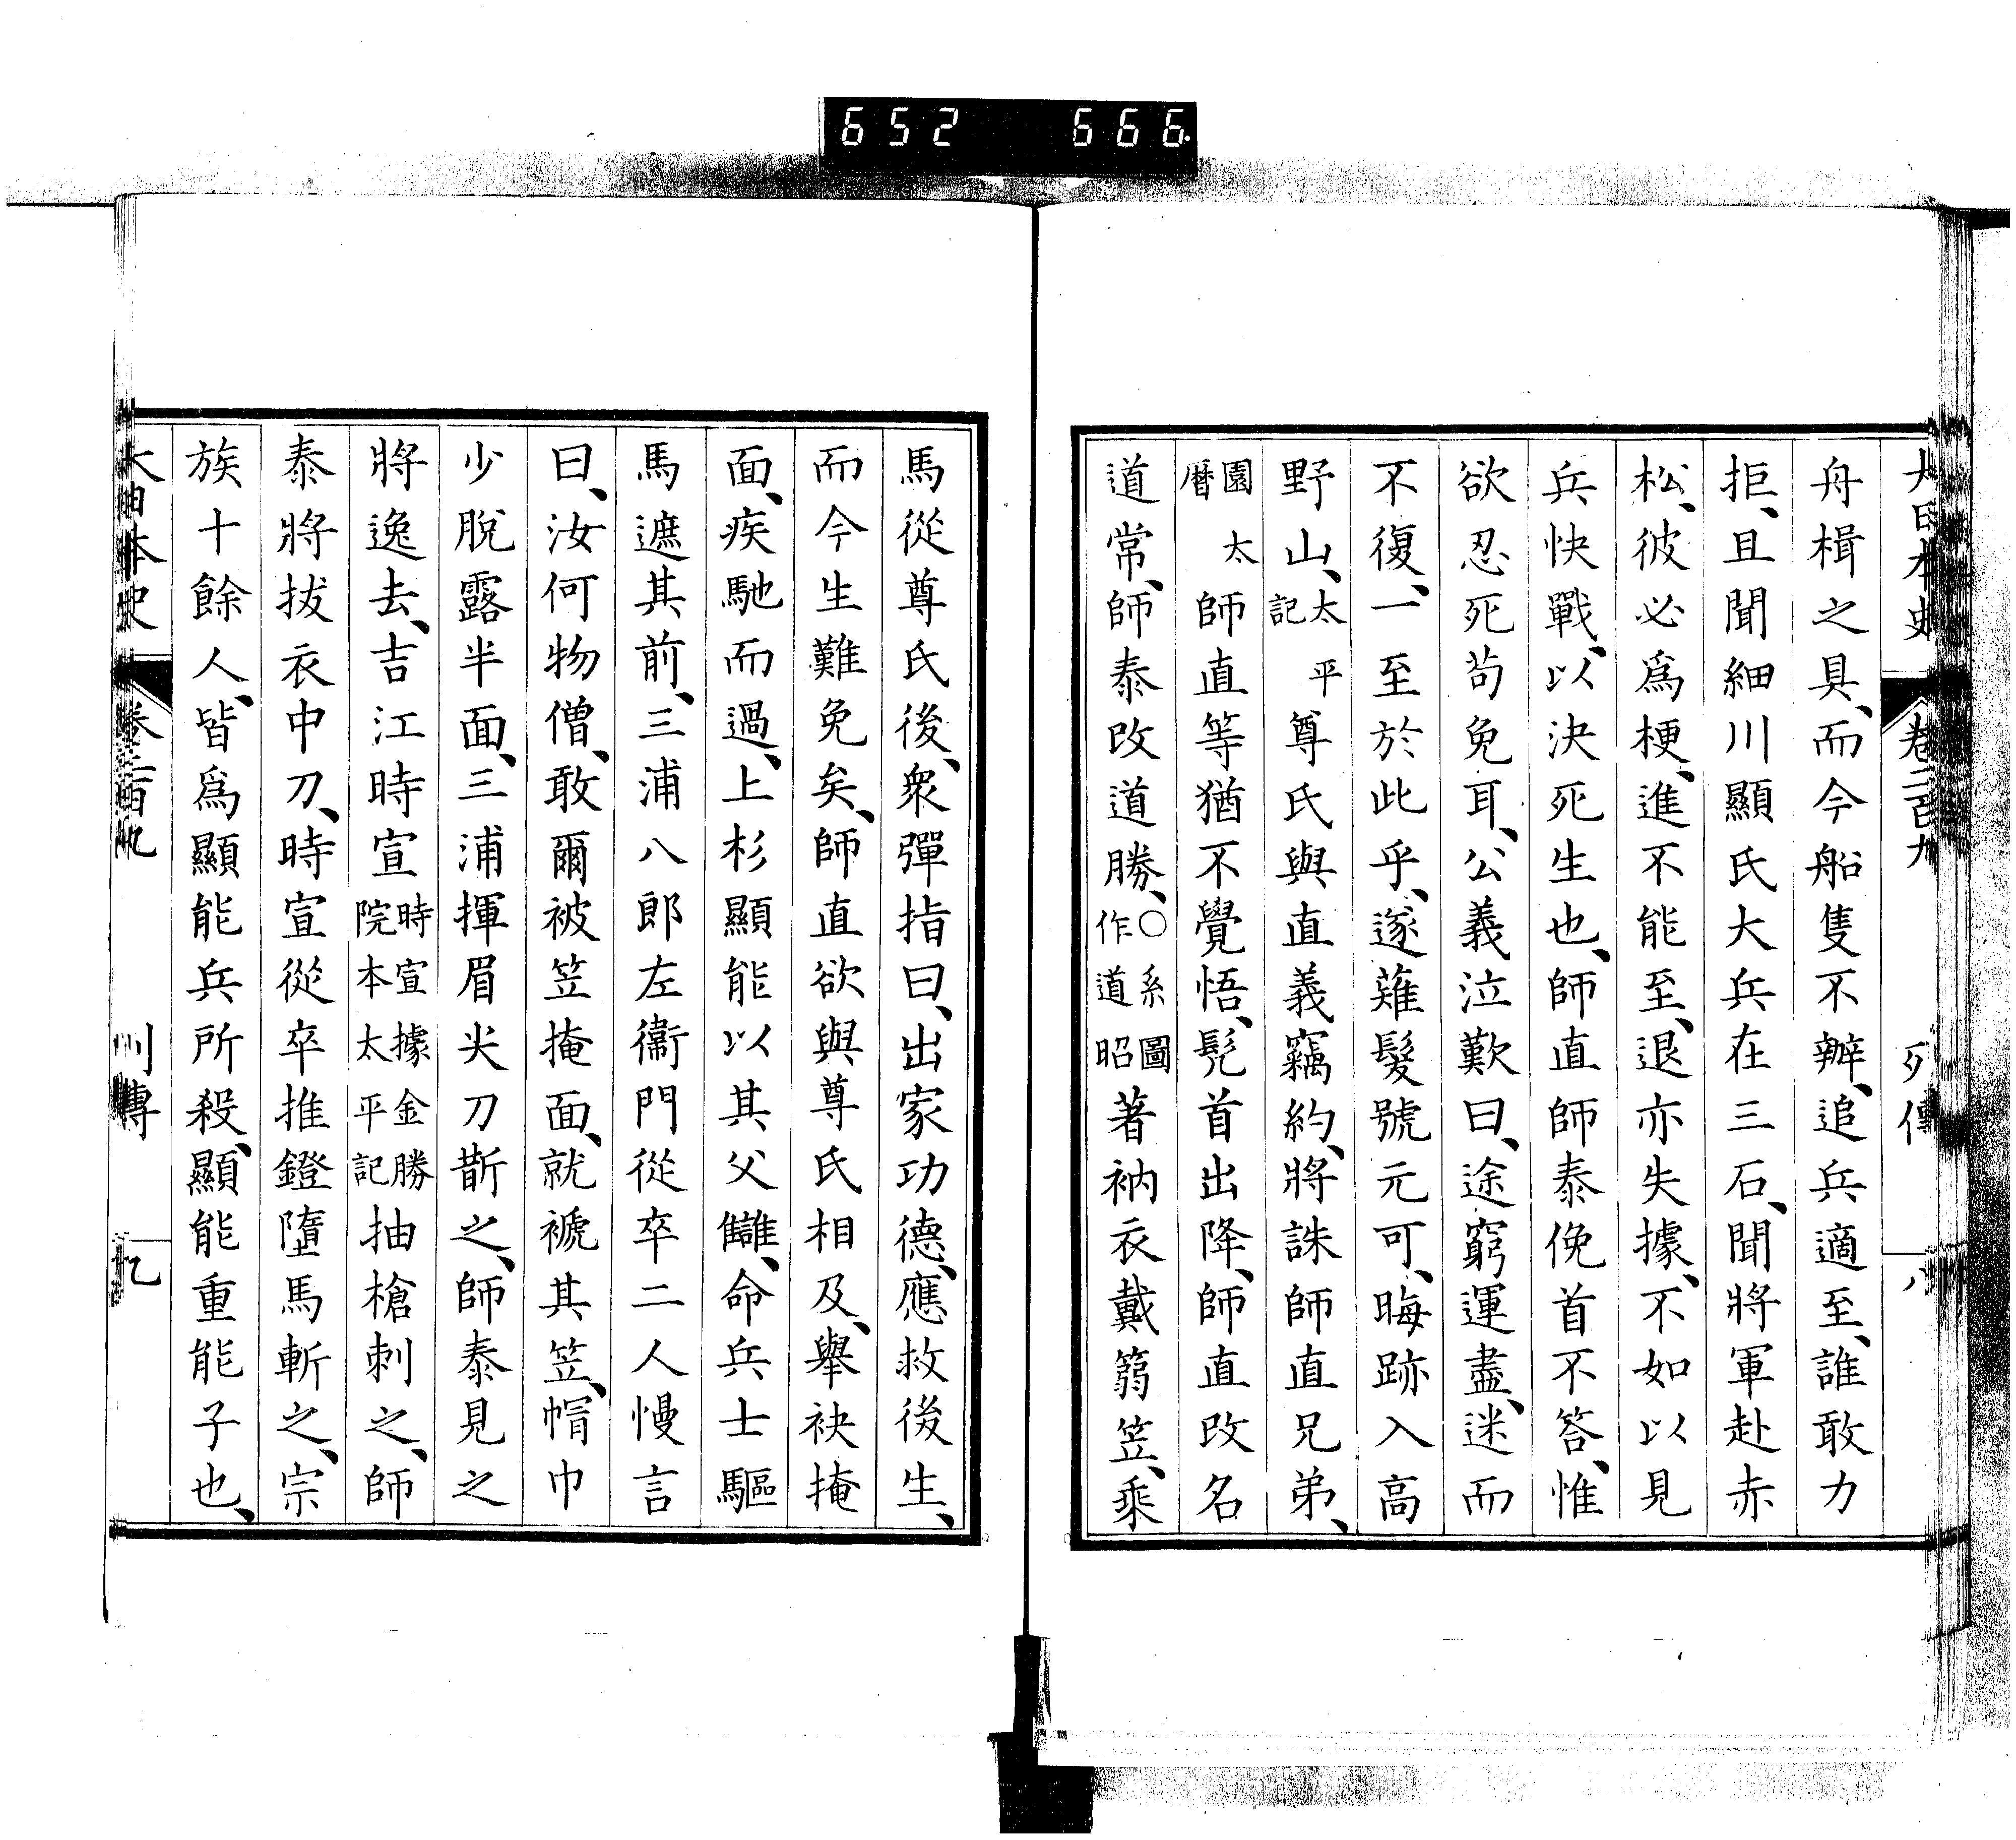 652 666
大日本史 卷二百九 列傳 八
舟楫之具、而今船隻不辦、追兵適至、誰敢力
拒、且聞細川顯氏大兵在三石、聞將軍赴赤
松、彼必爲梗、進不能至、退亦失據、不如以見
兵快戰、以決死生也、師直師泰俛首不答、惟
欲忍死苟免耳、公義泣歎曰、途窮運盡、迷而
不復、一至於此乎、遂薙髮號元可、晦跡入高
野山、太平記尊氏與直義竊約、將誅師直兄弟、
園太曆師直等猶不覺悟、髡首出降、師直改名
道常、師泰改道勝、○系圖作道昭著衲衣戴蒻笠、乘
馬從尊氏後、衆彈指曰、出家功德、應救後生、
而今生難免矣、師直欲與尊氏相及、舉袂掩
面、疾馳而過、上杉顯能以其父讎、命兵士驅
馬遮其前、三浦八郎左衞門從卒二人慢言
曰、汝何物僧、敢爾被笠掩面、就褫其笠、帽巾
少脫露半面、三浦揮眉尖刀斮之、師泰見之
將逸去、吉江時宣時宣據金勝院本太平記抽槍刺之、師
泰將拔衣中刀、時宣從卒推鐙墮馬斬之、宗
族十餘人、皆爲顯能兵所殺、顯能重能子也、
大日本史 卷二百九 列傳 九